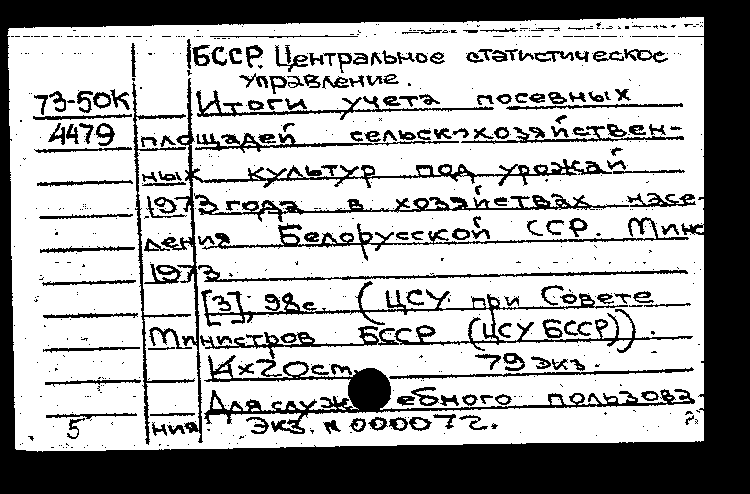 БССР. Центральное статистическое
управление.
73-50К Итоги учета посевных
4479 площадей сельскохозяйствен-
ных культур под урожай
1973 года в хозяйствах насе-
ления Белорусской ССР. Минс
1973.
[3], 98с (ЦСУ при Совете
Министров БССР (ЦСУ БССР)).
14×20см. 79 экз.
Для служебного пользова-
5 ния. Экз. № 000072.